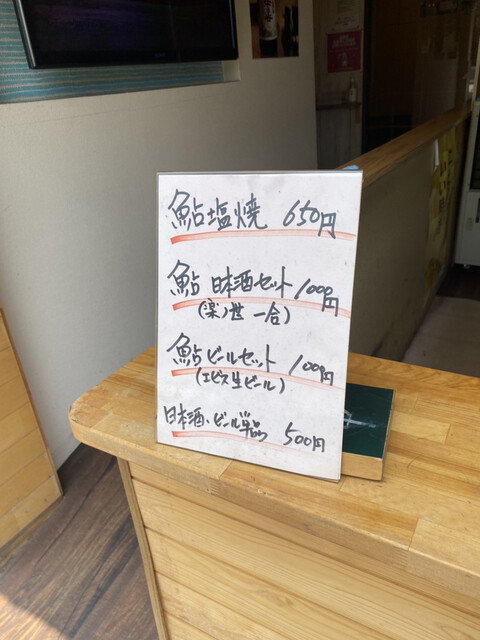 鮎塩焼 650円
鮎 日本酒セット 1000円
一合)
鮎 ビールセット 1000円
(エビス生ビール)
日本酒、ビール単品 500円